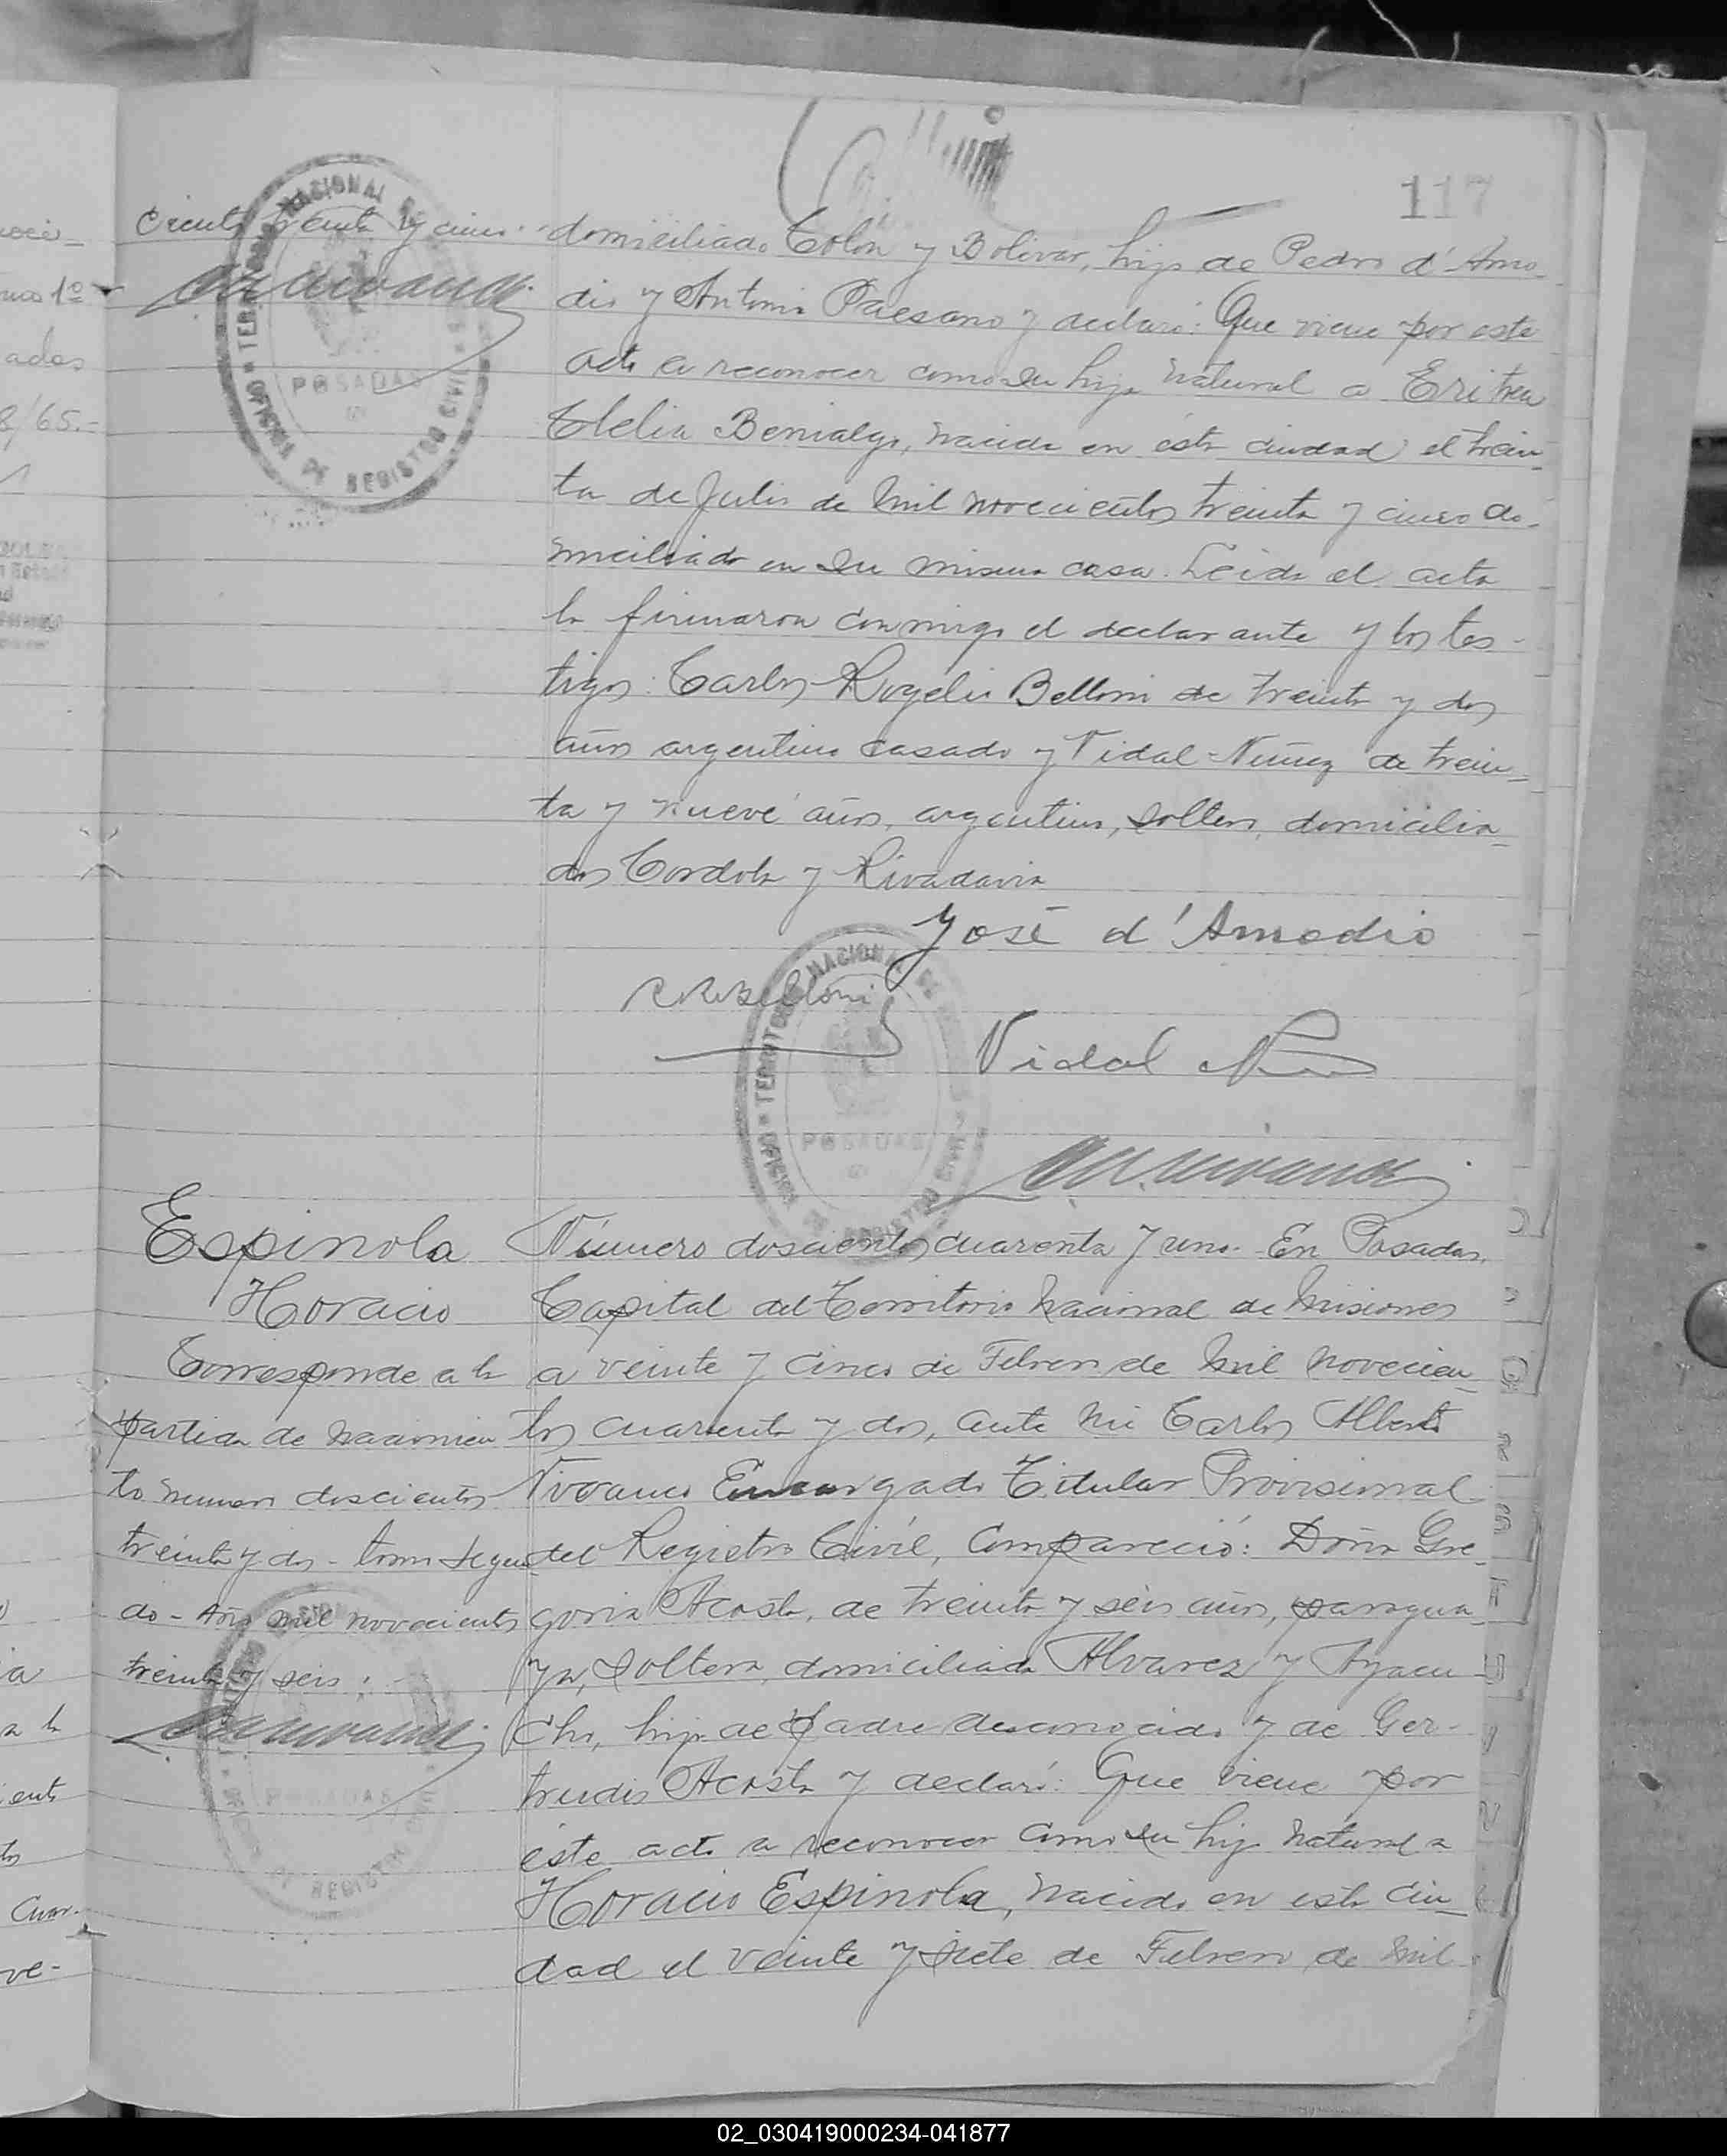 117
ciento treinta y cinco.
domiciliado Colón y Bolívar, hijo de Pedro d'Amo-
dio y Antonia Paesano y declaró: Que viene por este
acto a reconocer como su hija natural a Eritrea
Clelia Benialgo, nacida en ésta ciudad el trein-
ta de Julio de mil novecientos treinta y cinco do-
miciliado en su misma casa. Leida el acta
la firmaron conmigo el declarante y los tes-
tigos: Carlos Rogelio Belloni de treinta y dos
años argentino casado y Vidal Nuñez de trein-
ta y nueve años, argentino, soltero, domicilia-
dos Cordoba y Rivadavia
José d'Amodio
C.R.Belloni
Vidal
TERRITORIO NACIONAL DE MISIONES
POSADAS
OFICINA DE REGISTRO CIVIL
Espinola
Horacio
Corresponde a la
partida de nacimien
to numero doscientos
treinta y dos - tomo segun
do - Año mil novecientos
treinta y seis;
Número doscientos cuarenta y uno. En Posadas,
Capital del Territorio Nacional de Misiones
a veinte y cinco de Febrero de mil novecien-
tos cuarenta y dos, ante mi Carlos Alberto
Vivanco Encargado Titular Provisional
del Registro Civil, Compareció: Doña Gre-
goria Acosta, de treinta y seis años, paragua-
ya, soltera, domiciliada Alvarez y Ayacu-
cho, hija de padre desconocido y de Ger-
trudis Acosta y declaró: Que viene por
éste acto a reconocer como su hijo natural a
Horacio Espinola, nacido en esta ciu-
dad el veinte y siete de Febrero de mil
02_030419000234-041877